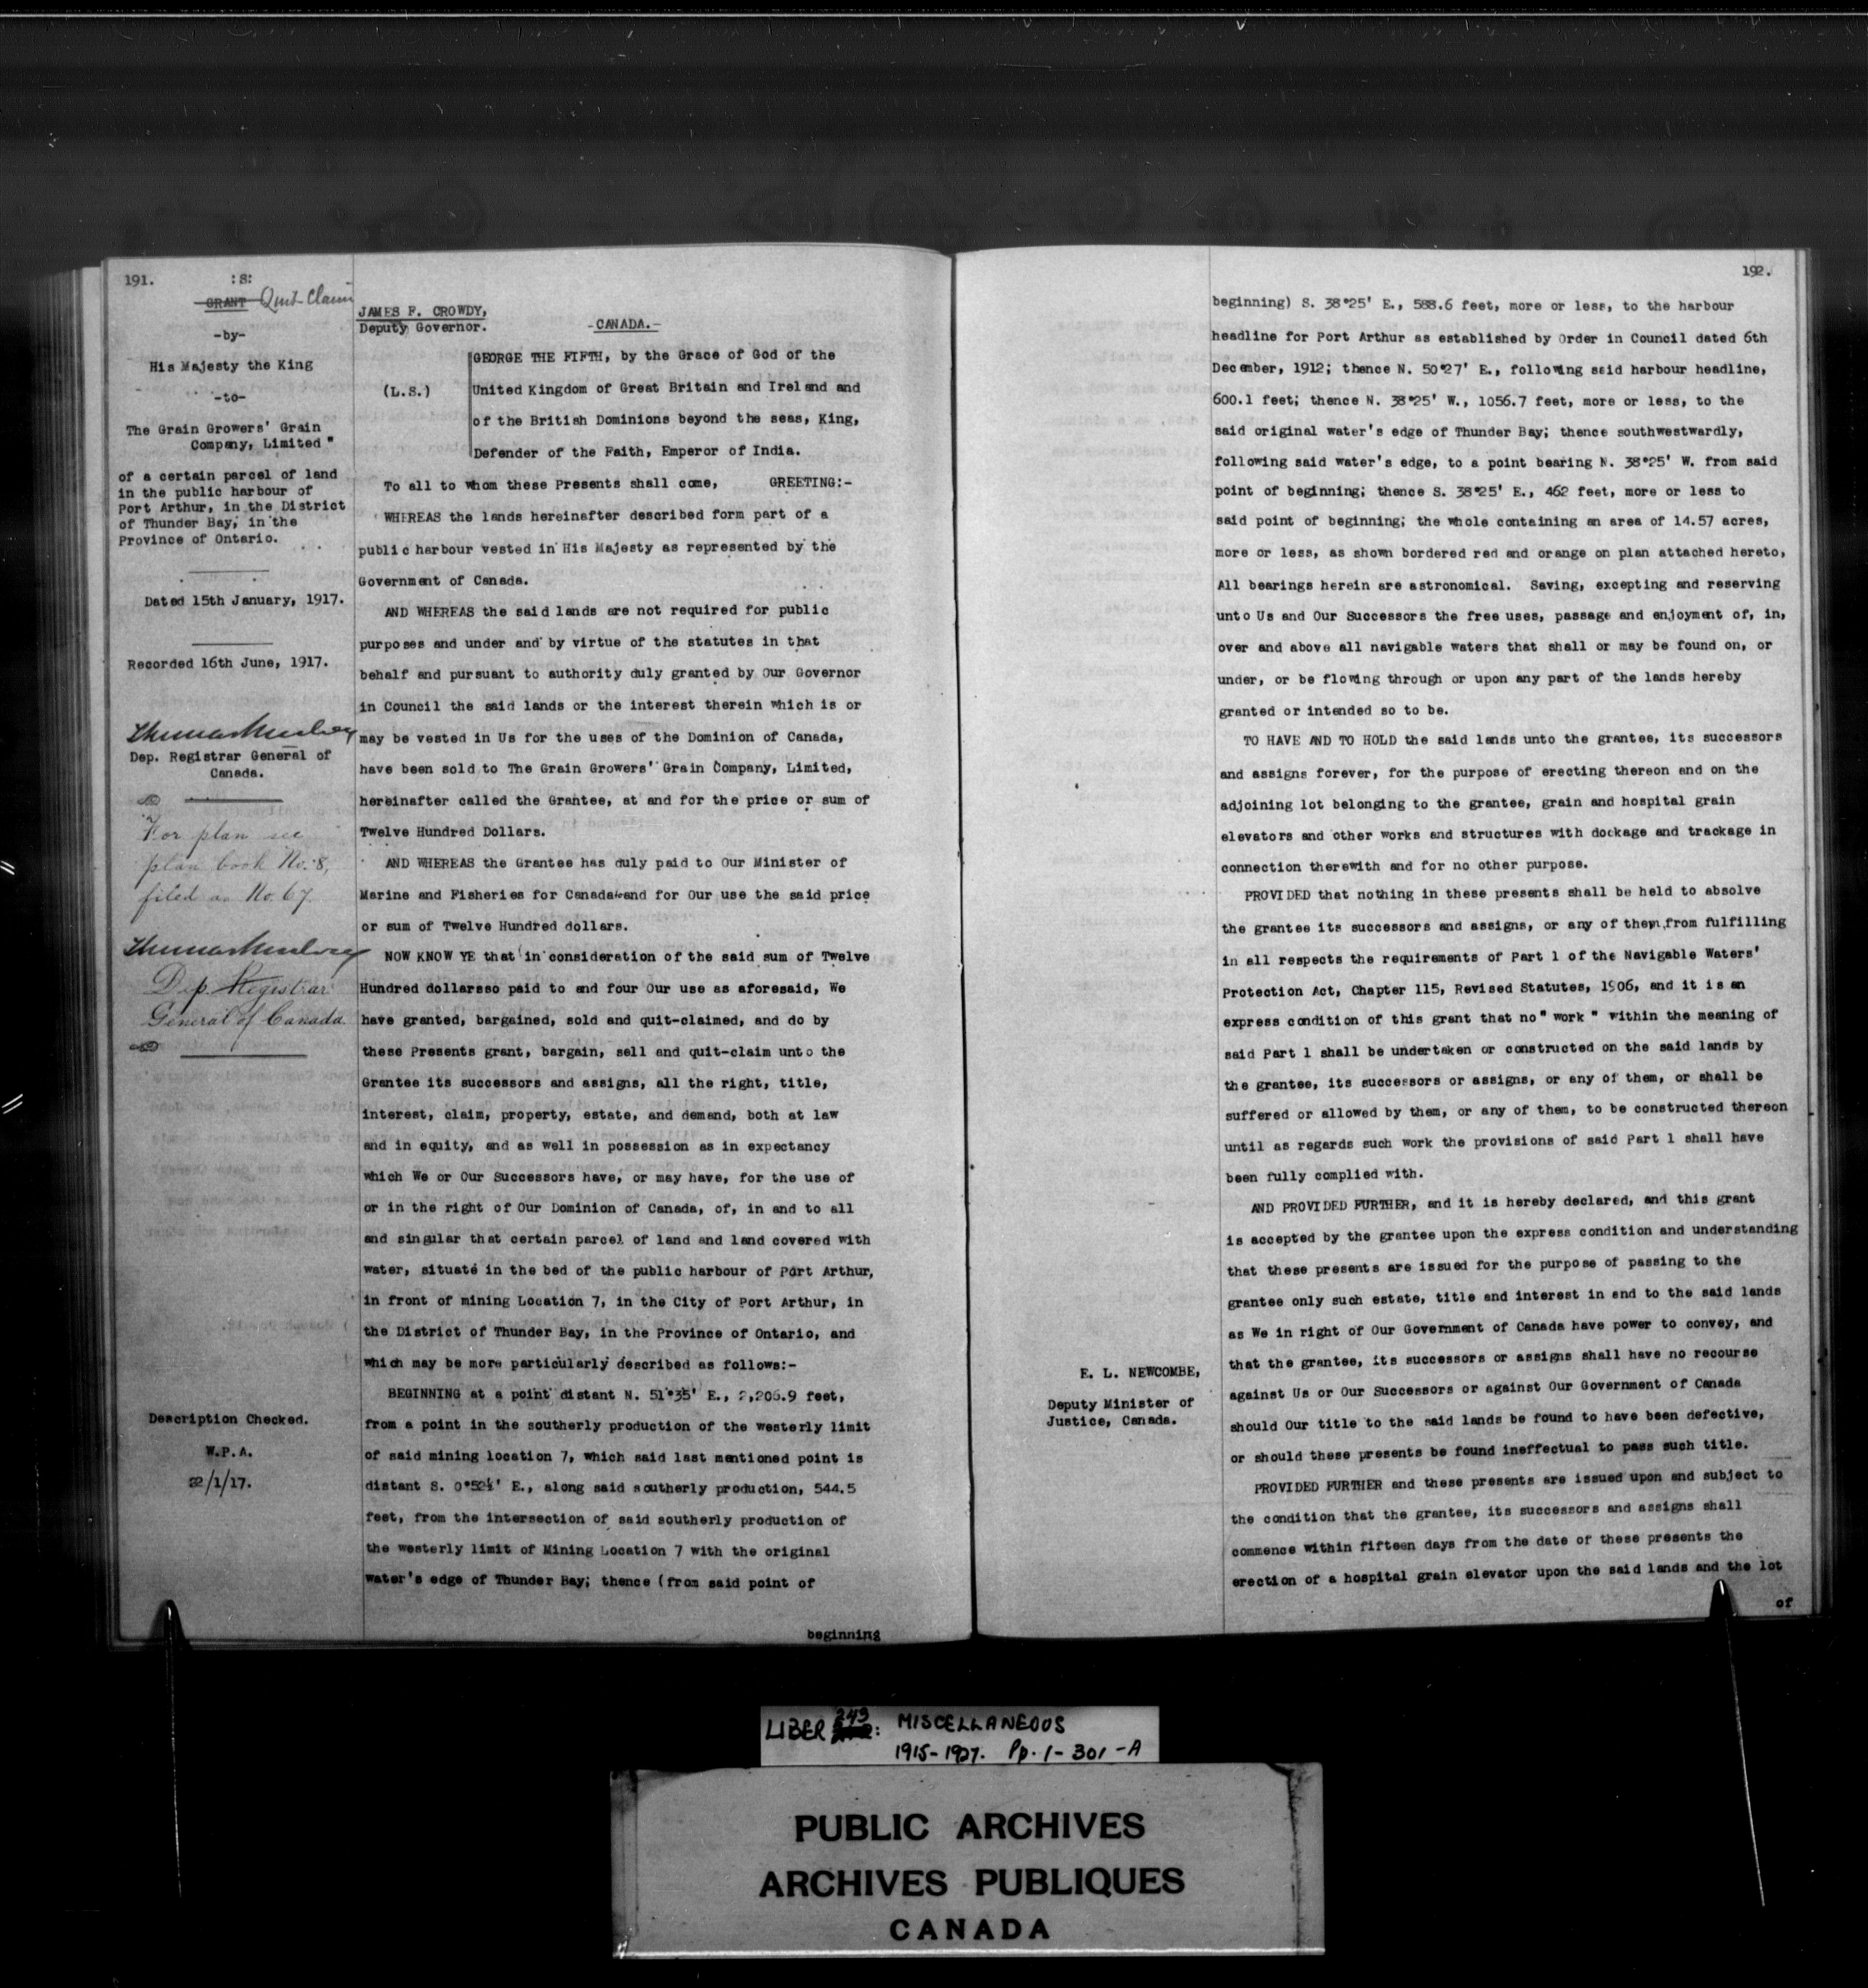 191.
:S:
GRANT Quit Claim
-by-
His Majesty the King
-to-
The Grain Growers' Grain
Company, Limited "
of a certain parcel of land
in the public harbour of
Port Arthur, in the District
of Thunder Bay, in the
Province of Ontario.
Dated 15th January, 1917.
Recorded 16th June, 1917.
Thomas Mulvey
Dep. Registrar General of
Canada.
For plan see
plan book No. 8,
filed as No. 67.
Thomas Mulvey
Dep. Registrar
General of Canada
Description Checked.
W.P.A.
22/1/17.
JAMES F. CROWDY,
Deputy Governor.
-CANADA.-
(L.S.)
GEORGE THE FIFTH, by the Grace of God of the
United Kingdom of Great Britain and Ireland and
of the British Dominions beyond the seas, King,
Defender of the Faith, Emperor of India.
To all to whom these Presents shall come, GREETING:-
WHEREAS the lands hereinafter described form part of a
public harbour vested in His Majesty as represented by the
Government of Canada.
AND WHEREAS the said lands are not required for public
purposes and under and by virtue of the statutes in that
behalf and pursuant to authority duly granted by Our Governor
in Council the said lands or the interest therein which is or
may be vested in Us for the uses of the Dominion of Canada,
have been sold to The Grain Growers' Grain Company, Limited,
hereinafter called the Grantee, at and for the price or sum of
Twelve Hundred Dollars.
AND WHEREAS the Grantee has duly paid to Our Minister of
Marine and Fisheries for Canada and for Our use the said price
or sum of Twelve Hundred dollars.
NOW KNOW YE that in consideration of the said sum of Twelve
Hundred dollarsso paid to and four Our use as aforesaid, We
have granted, bargained, sold and quit-claimed, and do by
these Presents grant, bargain, sell and quit-claim unto the
Grantee its successors and assigns, all the right, title,
interest, claim, property, estate, and demand, both at law
and in equity, and as well in possession as in expectancy
which We or Our Successors have, or may have, for the use of
or in the right of Our Dominion of Canada, of, in and to all
and singular that certain parcel of land and land covered with
water, situate in the bed of the public harbour of Port Arthur,
in front of mining Location 7, in the City of Port Arthur, in
the District of Thunder Bay, in the Province of Ontario, and
which may be more particularly described as follows:-
BEGINNING at a point distant N. 51°35' E., 2,206.9 feet,
from a point in the southerly production of the westerly limit
of said mining location 7, which said last mentioned point is
distant S. 0°52½' E., along said southerly production, 544.5
feet, from the intersection of said southerly production of
the westerly limit of Mining Location 7 with the original
water's edge of Thunder Bay; thence (from said point of
beginning
192.
beginning) S. 38°25' E., 588.6 feet, more or less, to the harbour
headline for Port Arthur as established by Order in Council dated 6th
December, 1912; thence N. 50°27' E., following said harbour headline,
600.1 feet; thence N. 38°25' W., 1056.7 feet, more or less, to the
said original water's edge of Thunder Bay; thence southwestwardly,
following said water's edge, to a point bearing N. 38°25' W. from said
point of beginning; thence S. 38°25' E., 462 feet, more or less to
said point of beginning; the whole containing an area of 14.57 acres,
more or less, as shown bordered red and orange on plan attached hereto,
All bearings herein are astronomical. Saving, excepting and reserving
unto Us and Our Successors the free uses, passage and enjoyment of, in,
over and above all navigable waters that shall or may be found on, or
under, or be flowing through or upon any part of the lands hereby
granted or intended so to be.
TO HAVE AND TO HOLD the said lands unto the grantee, its successors
and assigns forever, for the purpose of erecting thereon and on the
adjoining lot belonging to the grantee, grain and hospital grain
elevators and other works and structures with dockage and trackage in
connection therewith and for no other purpose.
PROVIDED that nothing in these presents shall be held to absolve
the grantee its successors and assigns, or any of them,from fulfilling
in all respects the requirements of Part 1 of the Navigable Waters'
Protection Act, Chapter 115, Revised Statutes, 1906, and it is an
express condition of this grant that no " work " within the meaning of
said Part 1 shall be undertaken or constructed on the said lands by
the grantee, its successors or assigns, or any of them, or shall be
suffered or allowed by them, or any of them, to be constructed thereon
until as regards such work the provisions of said Part 1 shall have
been fully complied with.
AND PROVIDED FURTHER, and it is hereby declared, and this grant
is accepted by the grantee upon the express condition and understanding
that these presents are issued for the purpose of passing to the
grantee only such estate, title and interest in and to the said lands
as We in right of Our Government of Canada have power to convey, and
that the grantee, its successors or assigns shall have no recourse
against Us or Our Successors or against Our Government of Canada
should Our title to the said lands be found to have been defective,
or should these presents be found ineffectual to pass such title.
PROVIDED FURTHER and these presents are issued upon and subject to
the condition that the grantee, its successors and assigns shall
commence within fifteen days from the date of these presents the
erection of a hospital grain elevator upon the said lands and the lot
of
E. L. NEWCOMBE,
Deputy Minister of
Justice, Canada.
LIBER 243: MISCELLANEOUS
1915-1927. Pp. 1-301-A
PUBLIC ARCHIVES
ARCHIVES PUBLIQUES
CANADA